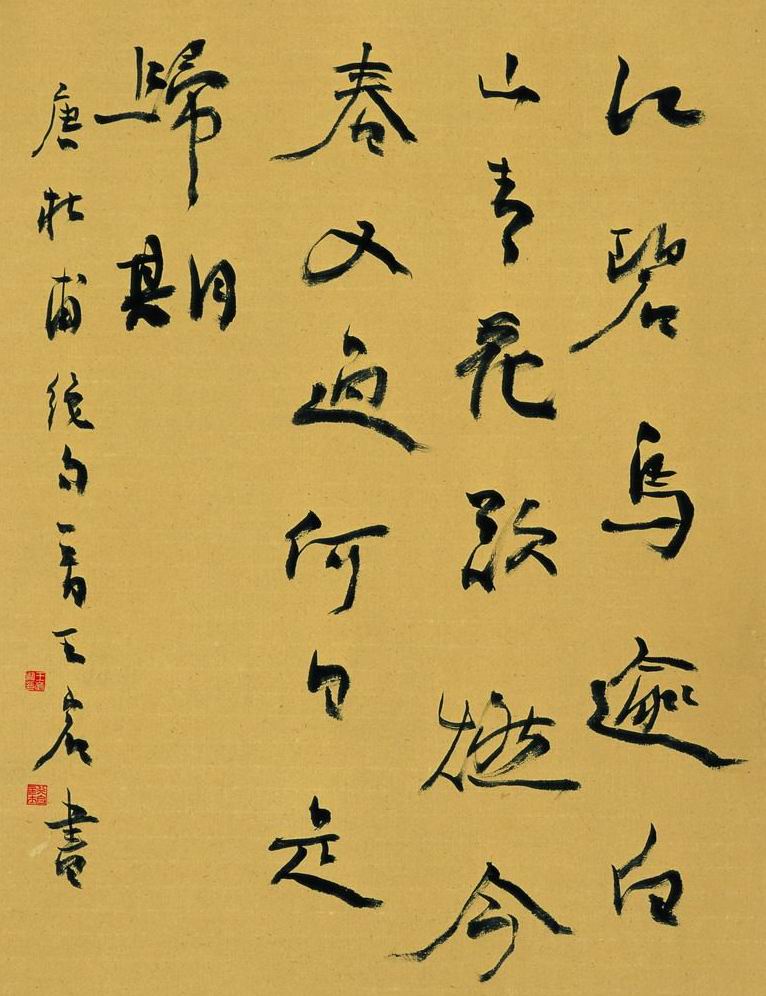 江碧鳥逾白
山青花欲燃今
春又過何日是
歸期
唐杜甫絕句一首王書